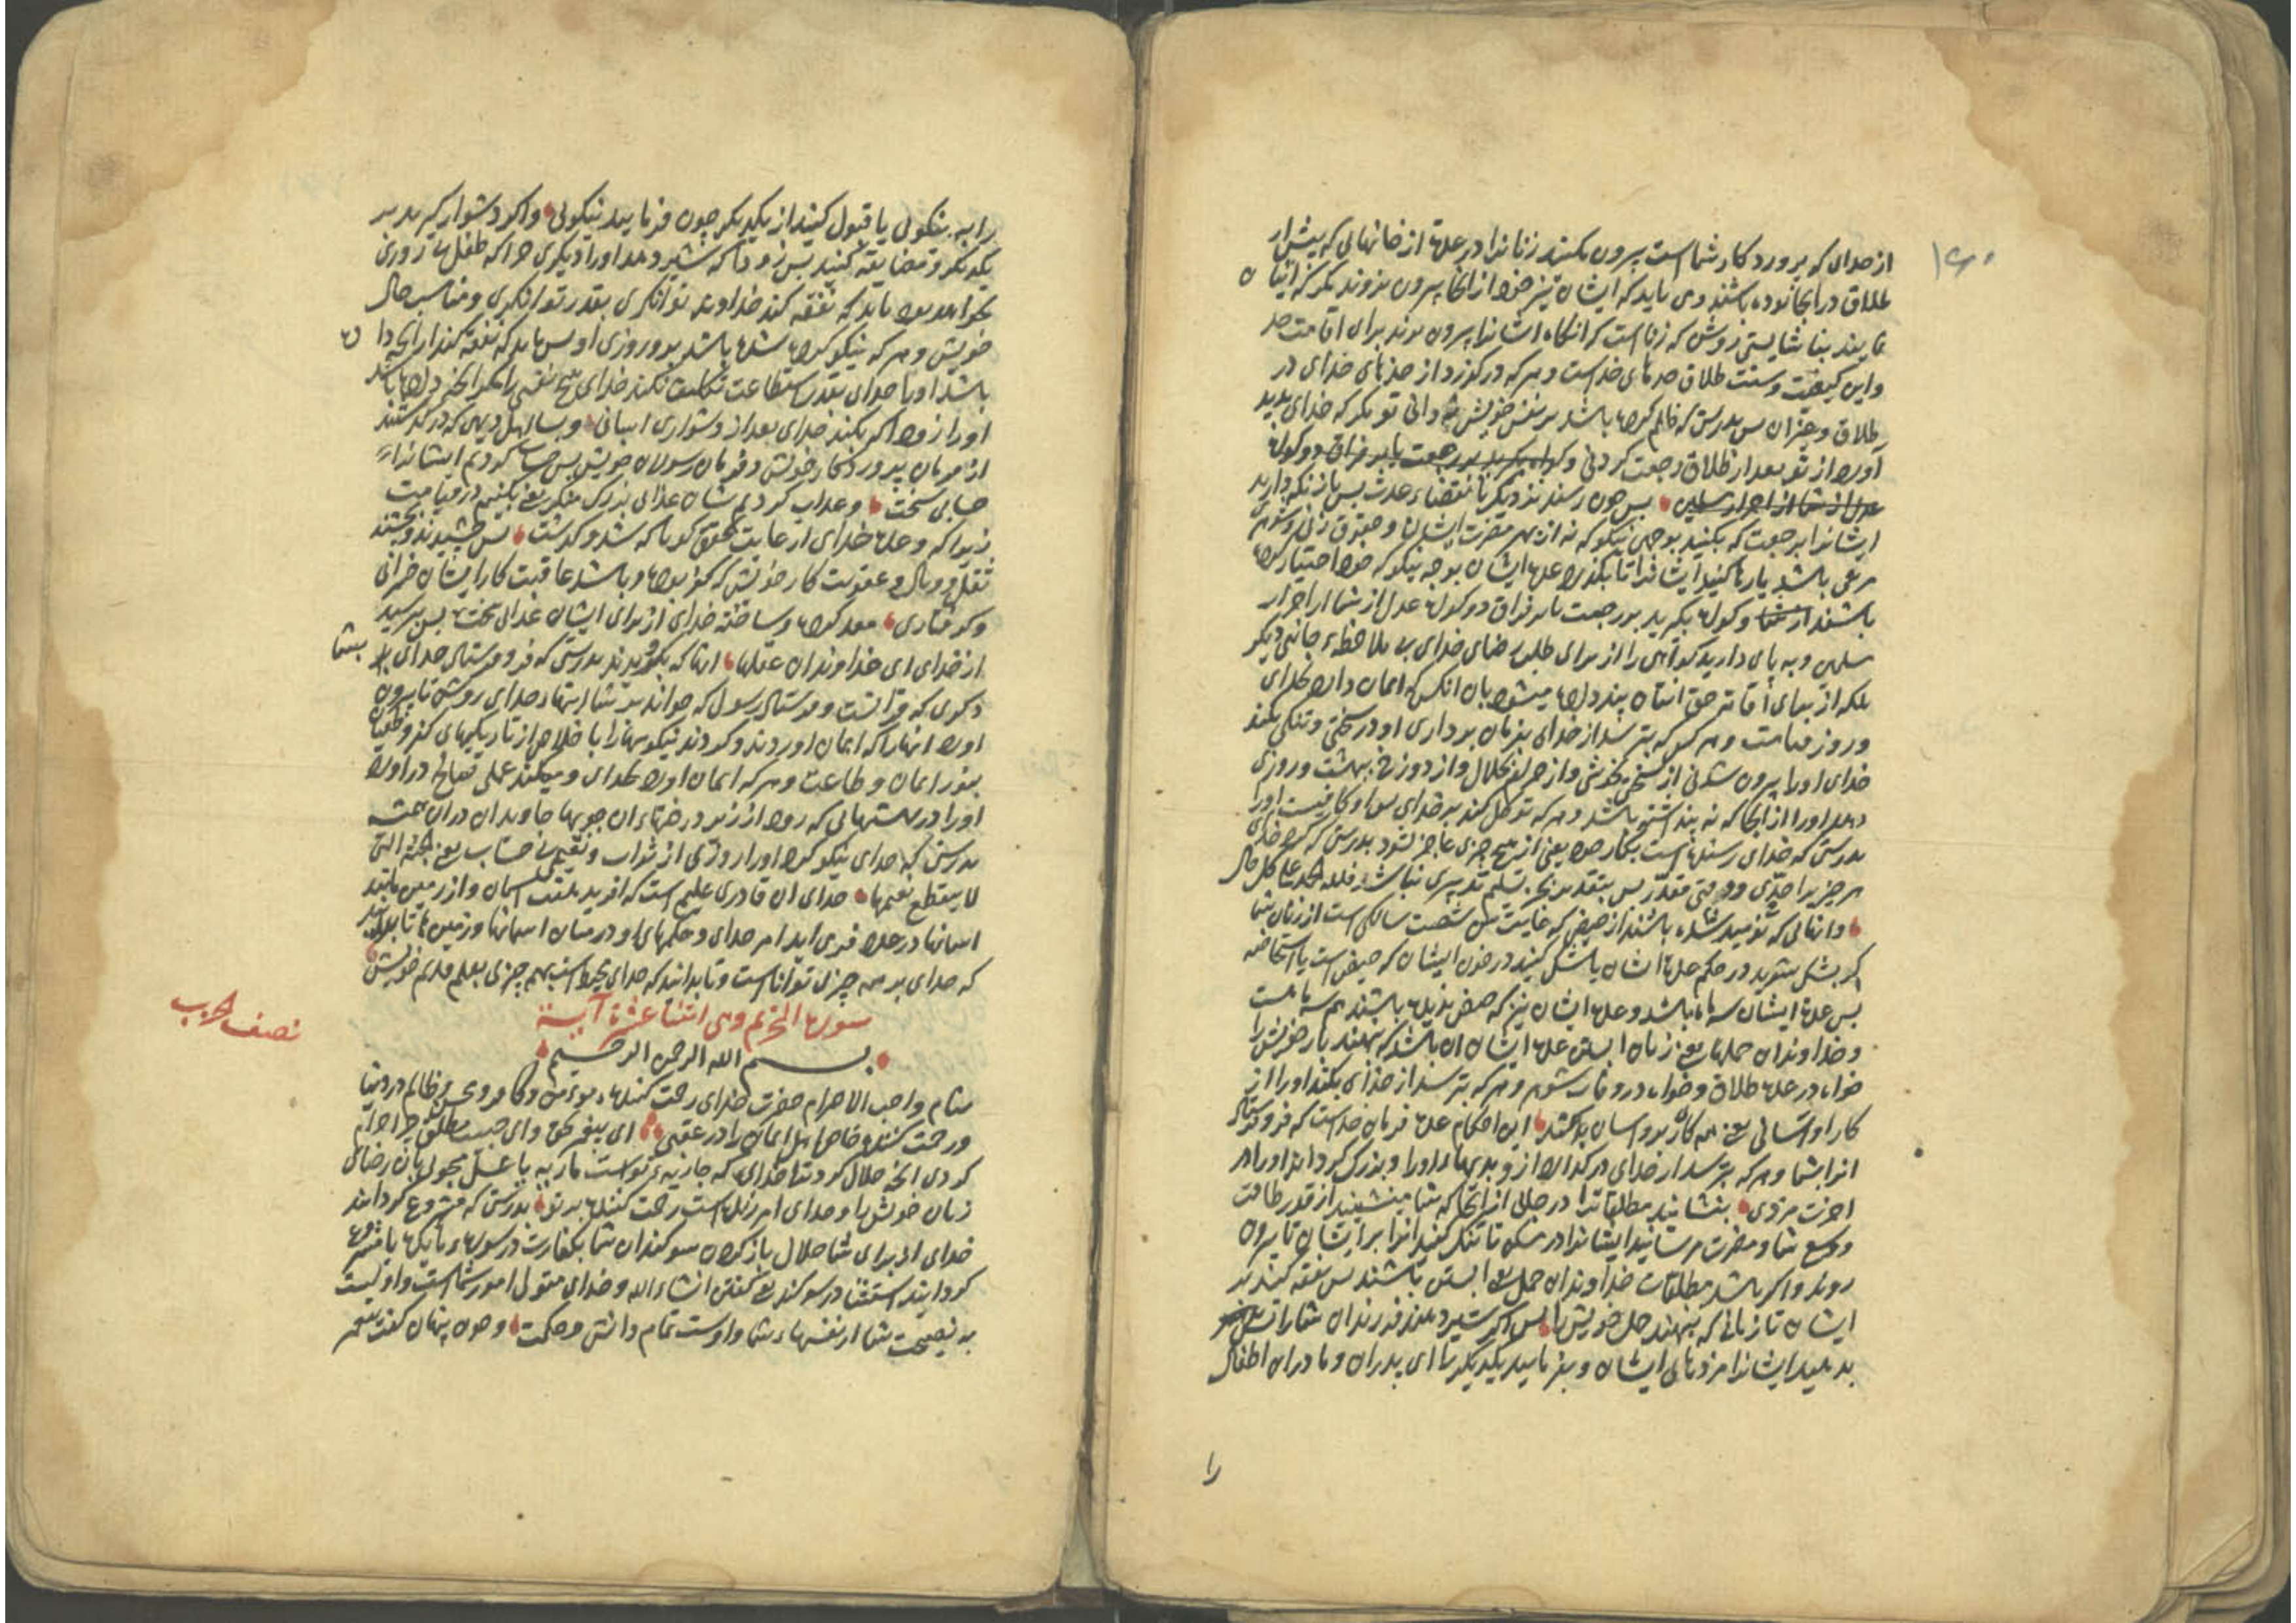 ۱۶۰
از خدای که پروردکار شماست بیرون مکنید زنانرا در عده از خانهائی که پیش از
طلاق در انجا بوده باشند و می باید که ایشان نیز خود از انجا بیرون نروند مکر که اتیان
نمایند بناشایستی روشن که زناست که انکاه ایشانرا بیرون برند برای اقامت حد
و این کیفیت و سنت طلاق حدهای خداست و هر که درکذرد از حدهای خدای در
طلاق و جز ان پس بدرستی که ظلم کرده باشد بر نفس خویش نه دانی تو مکر که خدای پدید
آورد از تو بعد از طلاق رجعت کردنی و کواه بکیرید بر رجعت یا بر فراق دو کواه
عدل از شما از احرار مسلمین پس چون رسند نزدیکی بانقضاء عدت پس باز نکه دارید
ایشانرا برجعت که بکنید بوجهی نیکو که نه از بهر مضرت ایشان و حقوق زن و شوهری
مرعی باشد یا رها کنید ایشانرا تا بکذرد عده ایشان بوجه نیکو که خود اختیار کرده
باشند از شما و کواه بکیرید بر رجعت یا بر فراق دو کواه عدل از شما از احرار
مسلمین و به پای دارید کواهی را از برای طلب رضای خدای بی ملاحظه جانبی دیکر
بلکه از برای اقامت حق اینان پند داده میشود بان انکس که ایمان دارد بخدای
و روز قیامت و هر کس که بترسد از خدای بفرمان برداری او در سختی و تنکی بکند
خدای او را بیرون شدنی از سختی بخوشی و از حرام بحلال و از دوزخ ببهشت و روزی
دهد او را از انجا که نه پنداشته باشد و هر که توکل کند بر خدای پس او کافیست او را
بدرستی که خدای رسنده است بکار خود یعنی از هیچ چیزی عاجز نشود بدرستی که کرد خدای
هر چیز را حدی و وقتی مقدر پس بتقدیر بجز تسلیم تدبیری نباشد فلله الحمد علی کل حال
و انهائی که نومید شده باشند از حیض که غایتش شصت سالکی است از زنان شما
اکر بشک بشوید در حکم عده ایشان یا شک کنید در خون ایشان که حیض است یا استحاضه
پس عده ایشان سه ماه باشد و عده ایشان نیز که حیض ندیده باشند هم سه ماهست
و خداوندان حملها یعنی زنان ابستن عده ایشان ان باشد که بنهند بار خویش را
خواه در عده طلاق و خواه در وفات شوهر و هر که بترسد از خدای بکند او را از
کار او اسانی یعنی همه کار برو اسان باشد این احکام عده فرمان خداست که فرو فرستاد
انرا بشما و هر که بترسد از خدای درکذارد ازو بدیهاء او را و بزرک کرداند او را در
اخرت مزدی بنشانید مطلقاترا در جائی از انجا که شما مینشینید از قدر طاقت
و وسع شما و مضرت مرسانید ایشانرا در مسکن تا تنک کنید انرا بر ایشان تا بیرون
روند و اکر باشند مطلقات خداوندان حمل یعنی ابستن باشند پس نفقه کنید بر
ایشان تا زمانی که بنهند حمل خویش را پس اکر شیر دهند فرزندان شما را
بدهید ایشانرا مزدهائی ایشان و بفرمایید یکدیکر را ای پدران و مادران اطفال
را
را به نیکوئی یا قبول کنید از یکدیکر چون فرمایید نیکوئی و اکر دشوار کیرید بر
یکدیکر و مضایقه کنید پس زود باشد که شیر دهد او را دیکری چرا که طفل بی روزی
نخواهد بود باید که نفقه کند خداوند توانکری بقدر توانکری و مناسب حال
خویش و هر که تنک کرده شده باشد برو روزی او پس باید که نفقه کند از انچه دا
ده
باشد او را خدای بقدر استطاعت تکلیف نکند خدای هیچ نفسی را مکر انچه داده باشد
او را زود که بکند خدای بعد از دشواری اسانی و بسا اهل دیهی که درکذشتند
از فرمان پروردکار خویش و فرمان رسولان خویش پس حساب کردیم ایشانرا
حسابی سخت و عذاب کردیم شان عذابی بزرک منکر یعنی بکنیم در قیامت
زیرا که وعده خدای از غایت تحقق کویا که شد و کذشت پس چشیدند
ثقل و وبال و عقوبت کار خویش که کفر بود و باشد عاقبت کار ایشان خسرانی
و کرفتاری معد کرده و ساخته خدای از برای ایشان عذابی سخت پس بترسید
از خدای ای خداوندان عقلها انها که بکرویدند بدرستی که فرو فرستاد خدای
بشما
ذکری که قرانست و فرستاد رسول که خواند بر شما ایتهاء خدای روشن تا بیرون
اورد انها را که ایمان اوردند و کردند نیکوییها را با خلاص از تاریکیهای کفر و طغیان
بنور ایمان و طاعت و هر که ایمان اورد بخدای و میکند عملی صالح دراورد
او را در بهشتهایی که رود از زیر درختهاء ان جویها جاویدان در ان همیشه
بدرستی که خدای نیکو کرد او را روزی از ثواب و نعیم بی حساب یعنی الجنة التی
لا ینقطع نعیمها خدای ان قادری علیم است که افرید هفت اسمان و از زمین مانند
اسمانها در عدد فرو می اید امر خدای و حکمهای او در میان اسمانها و زمین
که خدای بر همه چیزی تواناست و تا بدانند که خدای محیط است بهمه چیزی بعلم قدیم خویش
نصف الحزب
سورة التحریم وهی اثنتا عشرة آیة
بسم الله الرحمن الرحیم
بنام واجب الاحترام حضرت خدای رحمت کننده بمؤمن و کافر و محسن و ظالم در دنیا
و رحمت کننده خاص اهل ایمان را در عقبی ای پیغمبر بحق و ای حبیب مطلق چرا حرام
کردی انچه حلال کرد ترا خدای که جاریه تو است ماریه یا عسل میجوئی بان رضای
زنان خویش را و خدای امرزنده است رحمت کننده بر تو بدرستی که مشروع کردانید
خدای از برای شما حلال باز کردن سوکندان شما بکفارت در سوره مائده یا مشروع
کردانید استثنا در سوکند یعنی کفتن انشاء الله و خدای متولی امور شماست و اولیست
به نصیحت شما از نفسهاء شما و اوست تمام دانش و حکمت و چون پنهان کفت پیغمبر